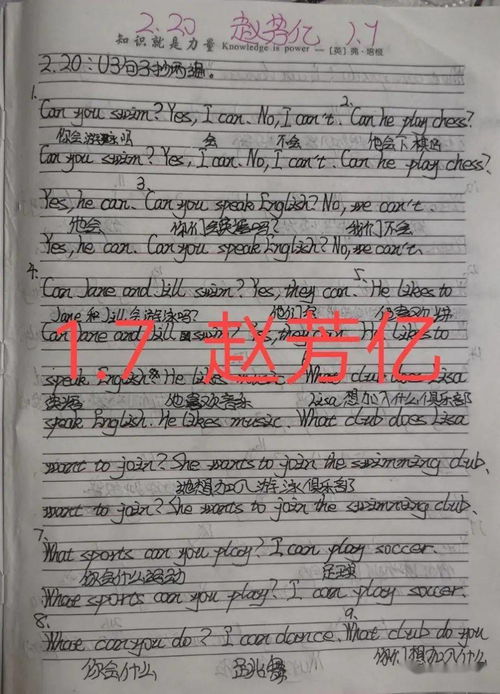 2.20 赵芳亿 1.7
知识就是力量 Knowledge is power — [英] 弗·培根
2.20：U3句子抄两遍。
1. 2.
Can you swim? Yes, I can. No, I can't. Can he play chess?
你会游泳吗 会 不会 他会下棋吗
Can you swim? Yes, I can. No, I can't. Can he play chess?
3.
Yes, he can. Can you speak English? No, we can't.
他会 你们会英语吗? 我们不会
Yes, he can. Can you speak English? No, we can't.
4. 5.
Can Jane and Jill swim? Yes, they can. He likes to
Jane和Jill会游泳吗? 他们会 他喜欢
Can Jane and Jill swim? Yes, they can. He likes to
1.7 赵芳亿
speak English. He likes music. What club does Lisa
英语 他喜欢音乐 Lisa想加入什么俱乐部
speak English. He likes music. What club does Lisa
want to join? She wants to join the swimming club.
她想加入游泳俱乐部
want to join? She wants to join the swimming club.
7.
What sports can you play? I can play soccer.
你会什么运动 足球
What sports can you play? I can play soccer.
8. 9.
What can you do? I can dance. What club do you
你会什么 你们想加入什么